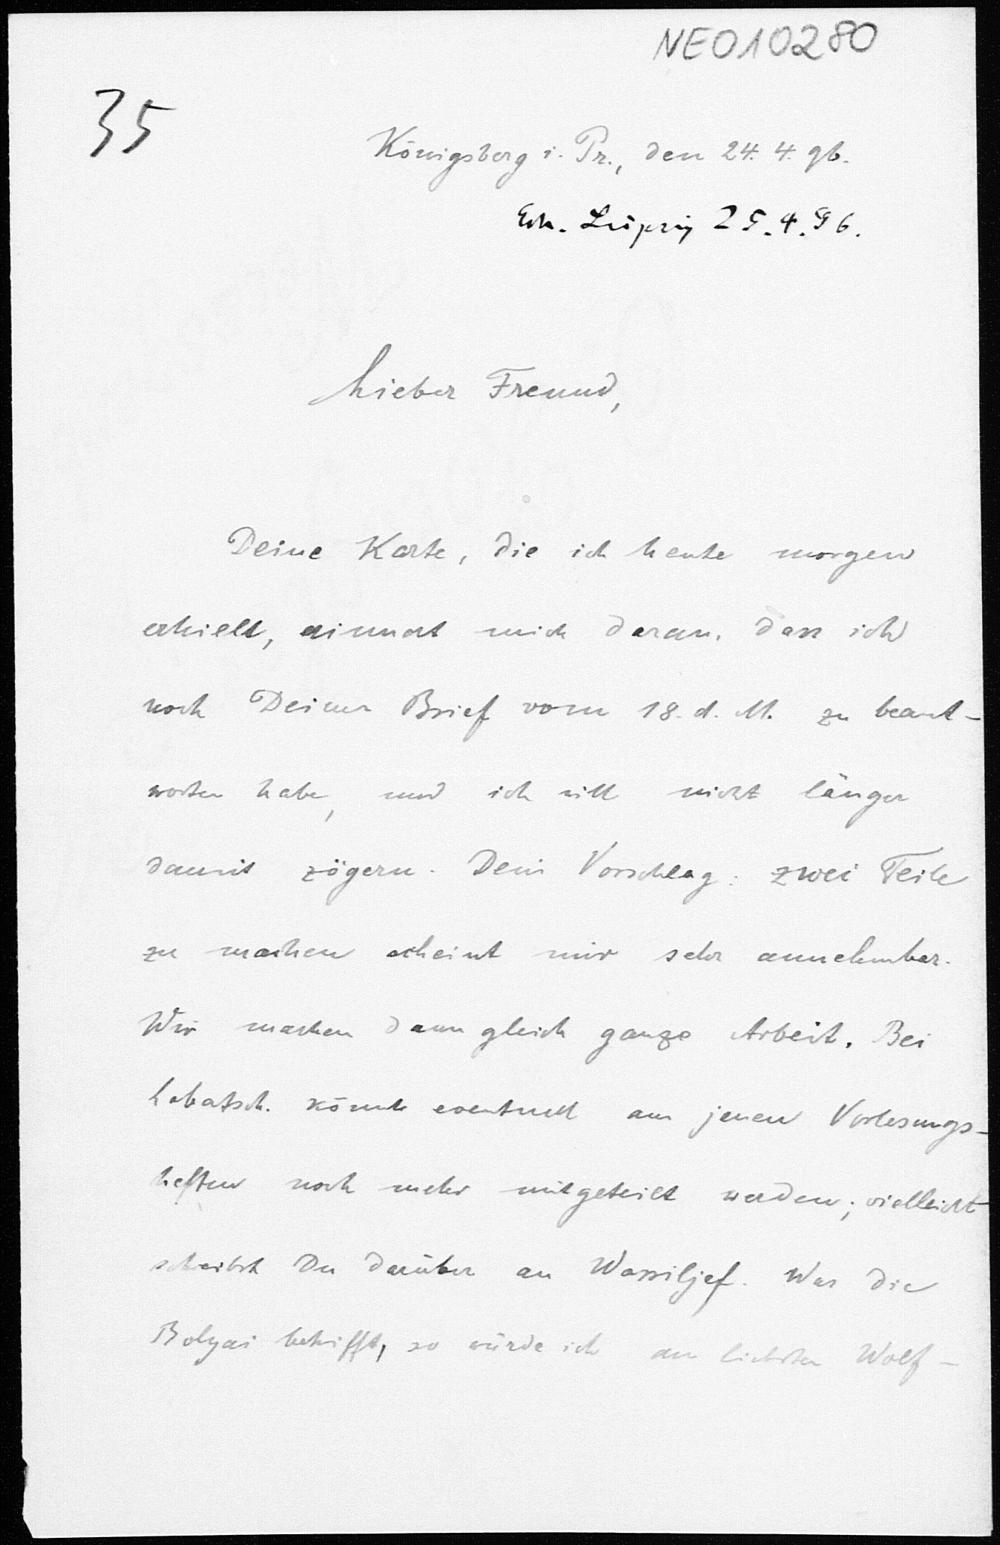 NE010280
35
Königsberg i. Pr., den 24. 4. 96.
Erh. Leipzig 25.4.96.
Lieber Freund,
Deine Karte, die ich heute morgen
erhielt, erinnert mich daran, dass ich
noch Deinen Brief vom 18. d. M. zu beant-
worten habe, und ich will nicht länger
damit zögern. Dein Vorschlag: zwei Teile
zu machen scheint mir sehr annehmbar.
Wir machen dann gleich ganze Arbeit. Bei
Lobatsch. könnte eventuell aus jenen Vorlesungs-
heften noch mehr mitgeteilt werden; vielleicht
schreibst Du darüber an Wassiljef. Was die
Bolyai betrifft, so würde ich am liebsten Wolf-